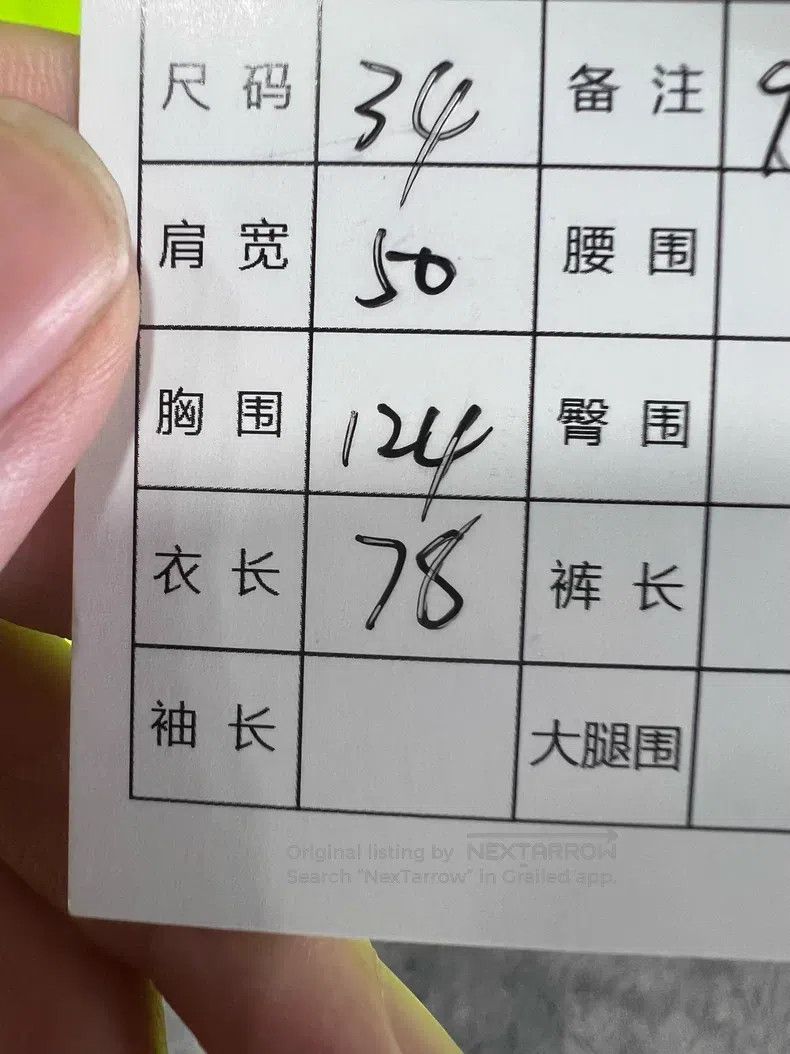 尺码 34 备注 9
肩宽 50 腰围
胸围 124 臀围
衣长 78 裤长
袖长 大腿围
Original listing by NEXTARROW
Search "NexTarrow" in Grailed app.